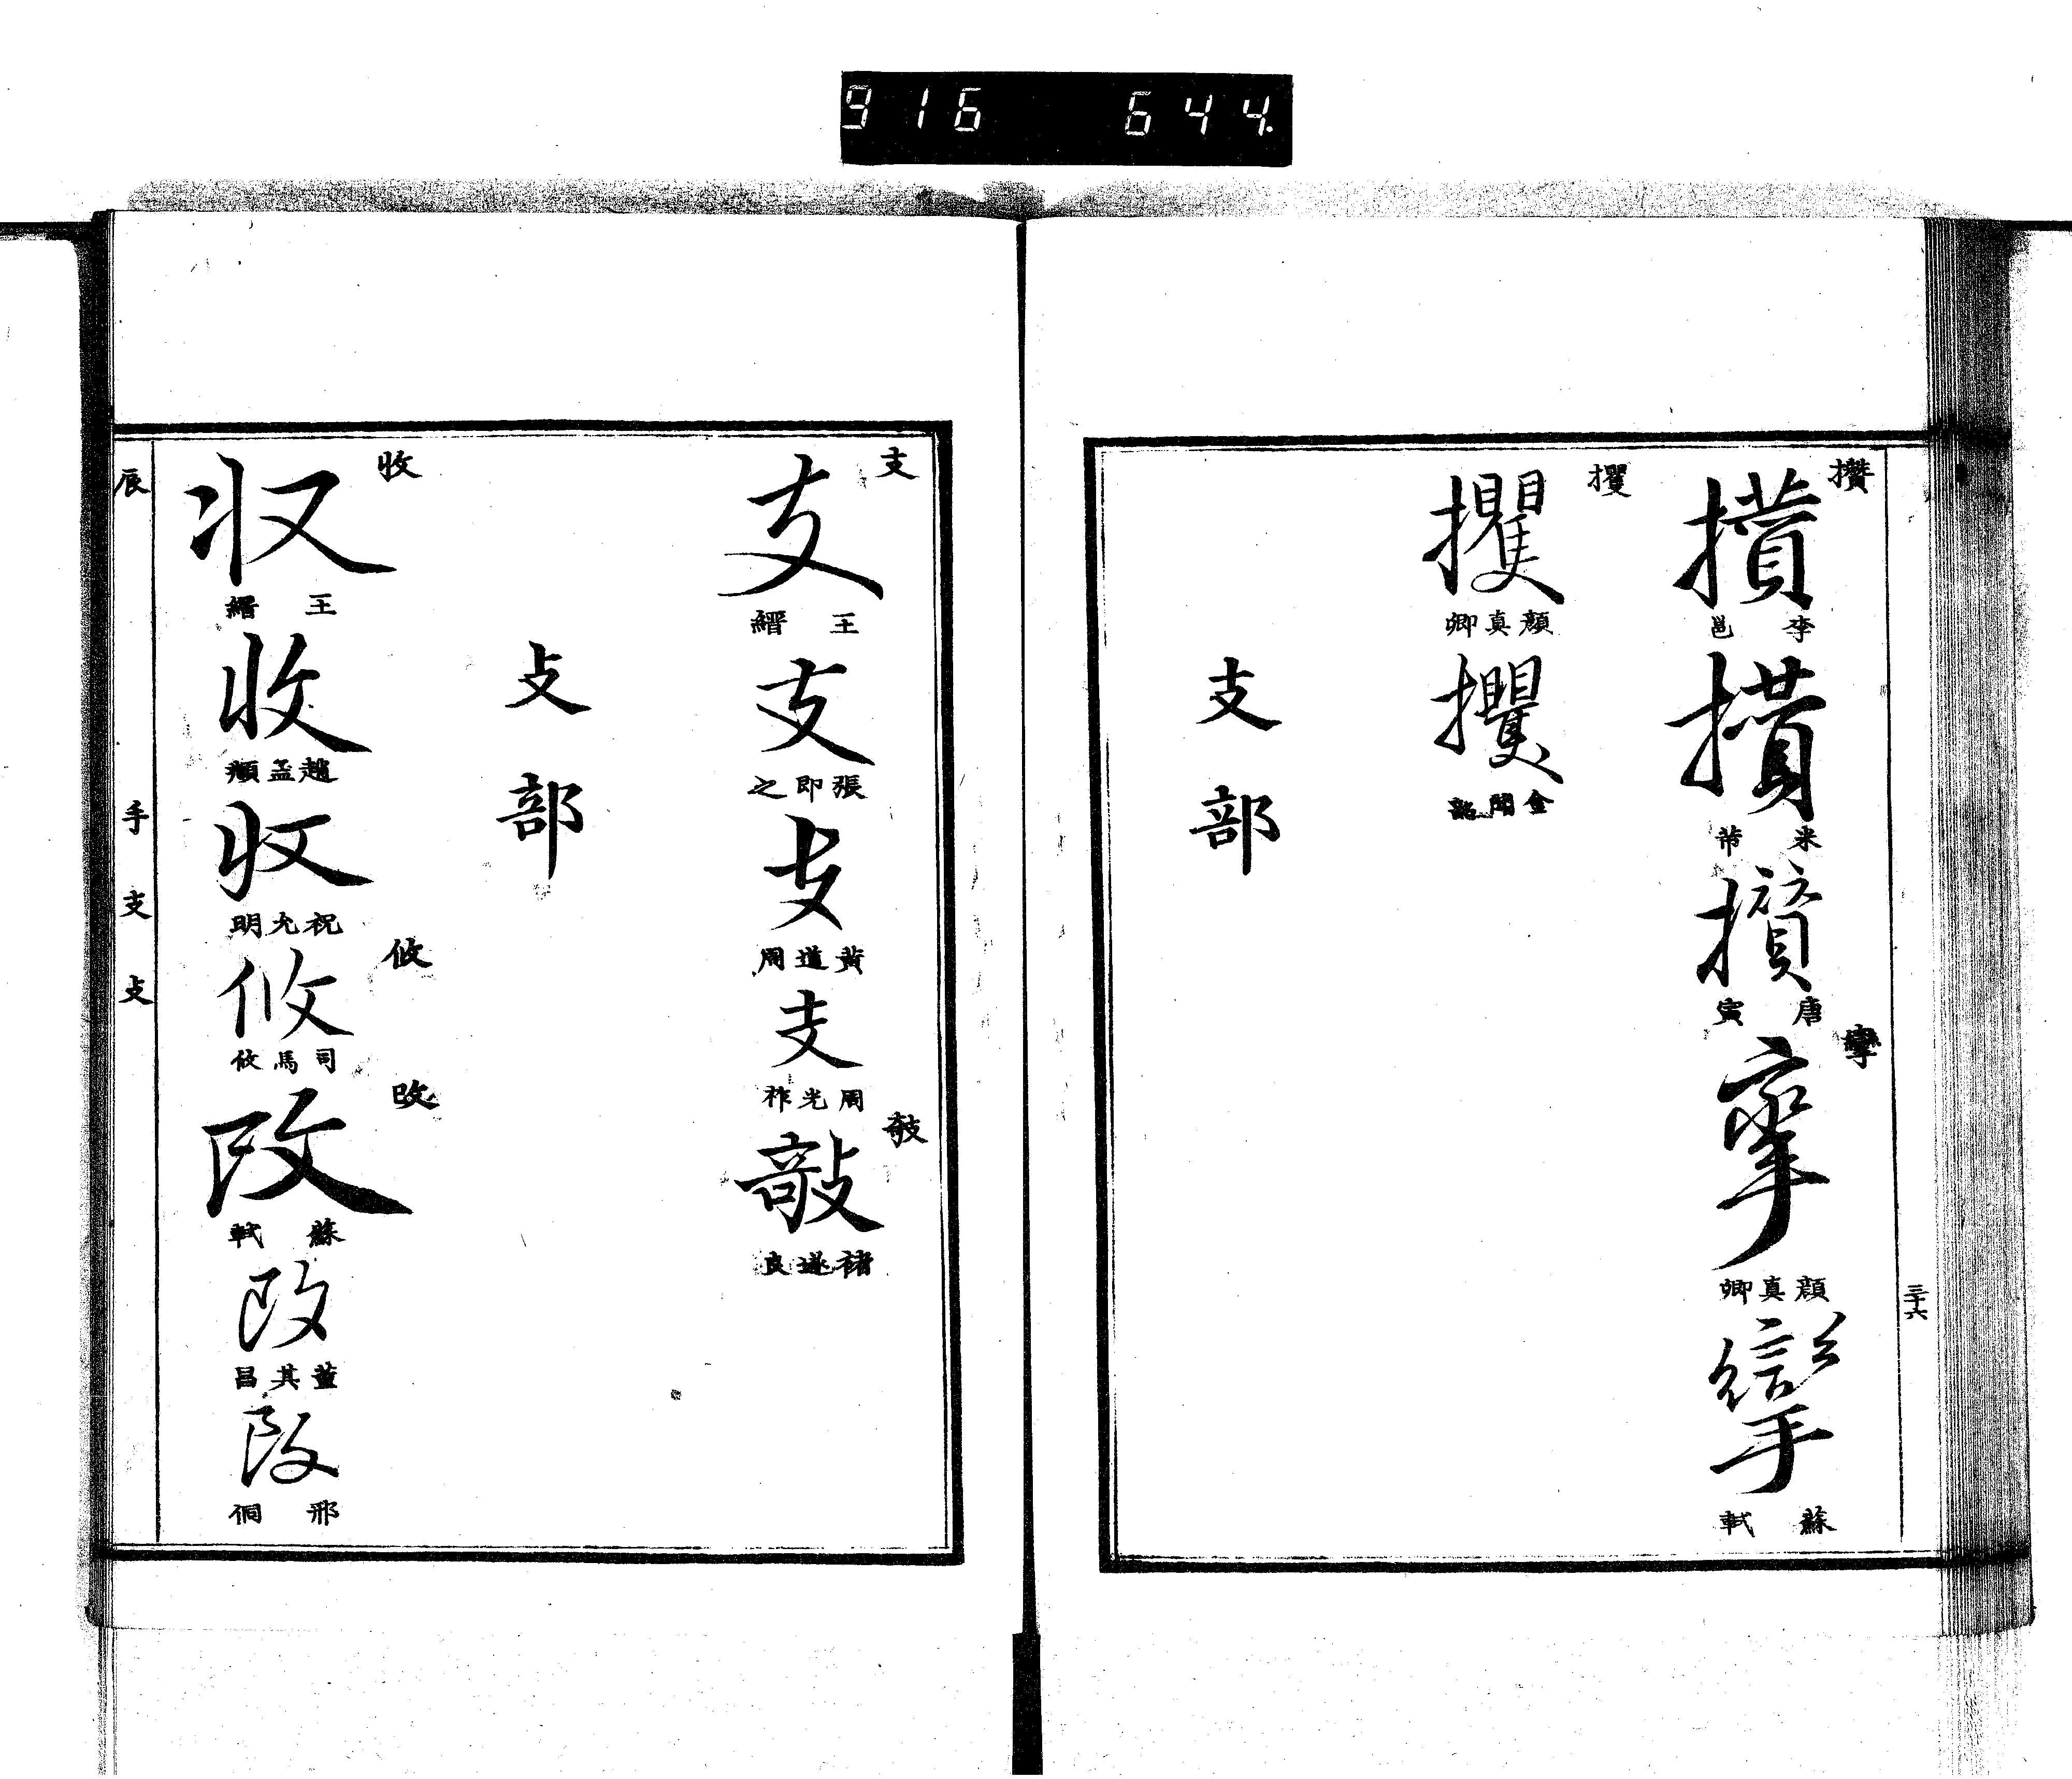 916 644.
三十六
攢
攢
李邕
攢
米芾
攢
唐寅
攣
攣
顏真卿
攣
蘇軾
攫
攫
顏真卿
攫
支部
支
支
王縉
支
張即之
支
黃道周
支
周光祚
敧
敧
褚遂良
攴部
收
收
王縉
收
趙孟頫
收
祝允明
攸
攸
司馬攸
改
改
蘇軾
改
董其昌
改
邢侗
辰 手 支 攴